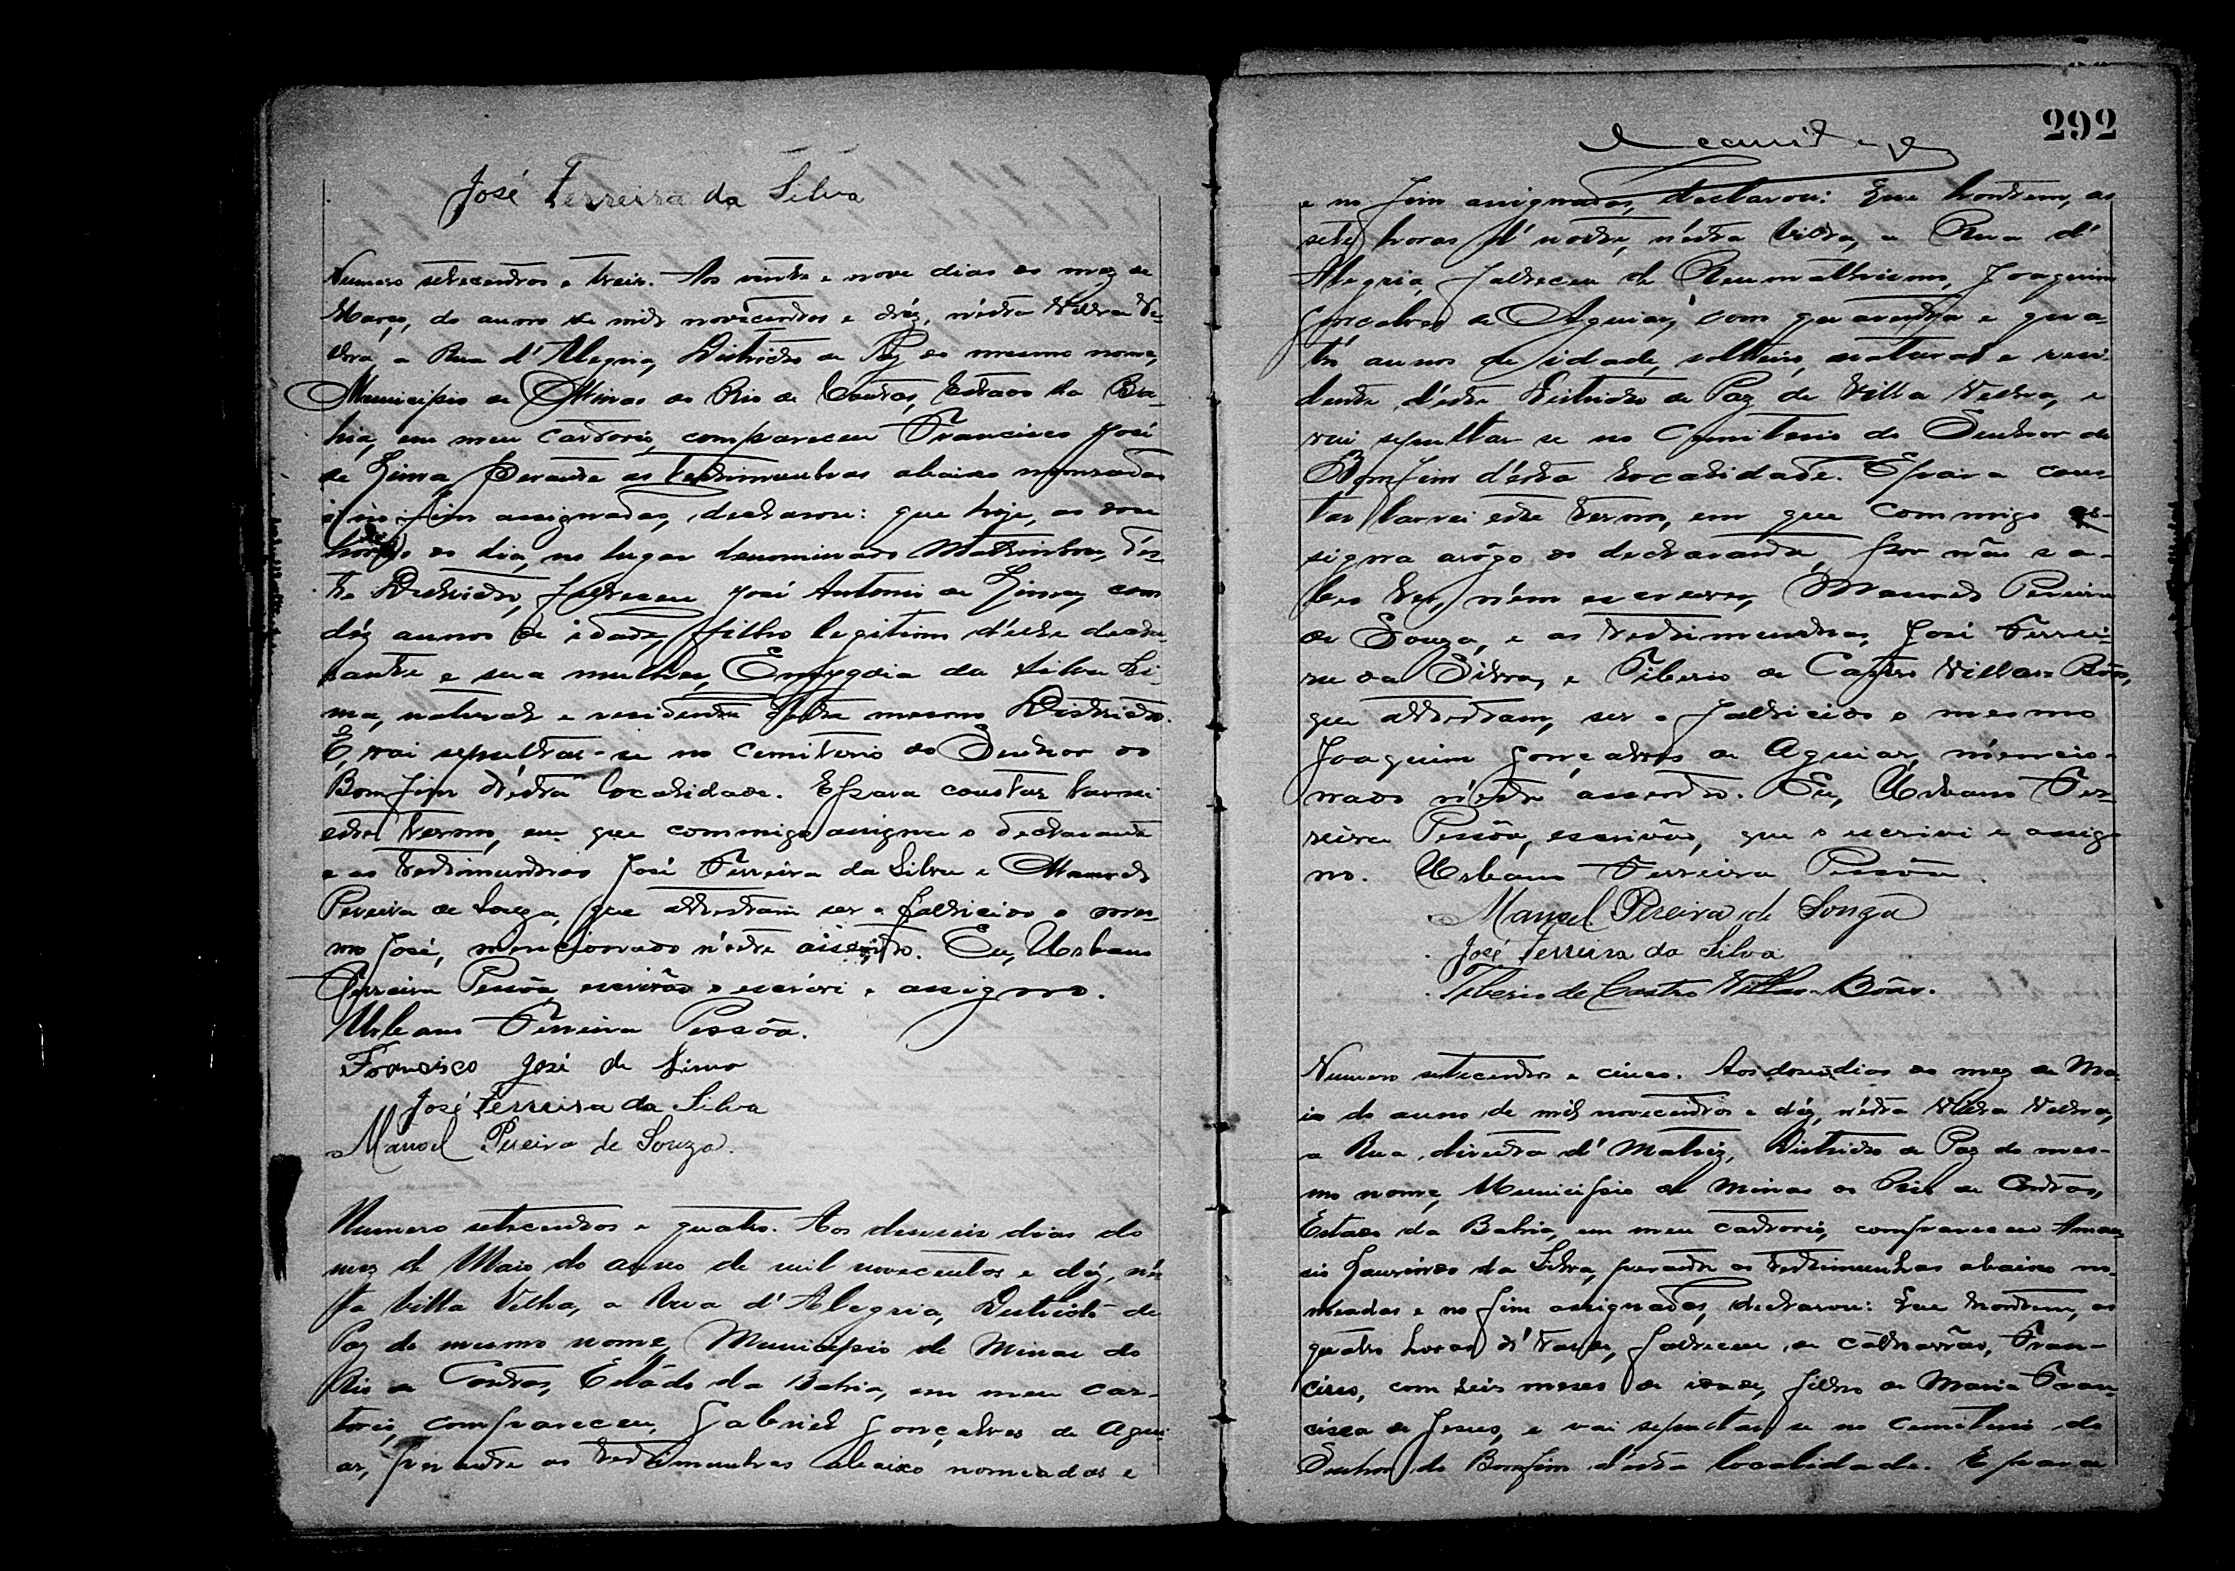 José Ferreira da Silva
Numero setecentos e treis. Aos vinte e nove dias do mez de
Março, do anno de mil novecentos e déz, n'esta Villa Ve-
lha a Rua d'Alegria, Districto de Paz do mesmo nome,
Municipio de Minas do Rio de Contas, Estado da Ba-
hia, em meu cartorio, compareceu Francisco José
de Lima perante as testimunhas abaixo nomeadas
e no fim assignadas, declarou: que hoje, as doze
horas do dia, no lugar denominado Mattinha, d'es-
te Districto, falleceu José Antonio de Lima, com
déz annos de idade, filho legitimo d'elle decla
rante e sua mulher, Emygdia da Silva Li-
ma, natural e residente d'este mesmo Districto.
E, vai sepultar-se no cemiterio do Senhor do
Bomfim d'esta localidade. E para constar lavrei
este termo, em que commigo assigna o declarante
e as testimunhas José Ferreira da Silva e Manoel
Pereira de Souza, que attestam ser o fallicido o mes-
mo José, mencionado n'este assento. Eu, Urbano
Ferreira Pessôa, escrivão o escrivi e assigno.
Urbano Ferreira Pessôa.
Francisco José de Lima
José Ferreira da Silva
Manoel Pereira de Souza.
Numero setecentos e quatro. Aos deseseis dias do
mez de Maio do anno de mil novecentos e déz, n'es
ta Villa Velha, a Rua d'Alegria, Districto de
Paz do mesmo nome, Municipio de Minas do
Rio de Contas, Estado da Bahia, em meu car-
torio, compareceu, Gabriel Gonçalves de Agui
ar, perante as testimunhas abaixo nomeadas e
292
e no fim assignadas, declarou: Que hontem, as
sete horas d'noite, n'esta Villa, a Rua d'
Alegria, falleceu de Reumathismo, Joaquim
Goncalves de Aguiar, com quarenta e qua-
tro annos de idade, solteiro, natural e resi-
dente d'este Districto de Paz de Villa Velha, e
vai sepultar se no Cemiterio do Senhor do
Bomfim d'esta localidade. E para cons-
tar lavrei este termo, em que commigo as-
signa arôgo do declarante, por não sa-
ber ler, n'em escrever, Manoel Pereira
de Souza, e as testimunhas, José Ferrei-
ra da Silva, e Tiberio de Castro Villas Bôas,
que attestam, ser o fallicido o mesmo
Joaquim Gonçalves de Aguiar, mencio-
nado n'este assento. Eu, Urbano Fer-
reira Pessôa, escrivão, que o escrivi e assig-
no. Urbano Ferreira Pessôa.
Manoel Pereira de Souza
José Ferreira da Silva
Tiberio de Castro Villas-Bôas.
Numero setecentos e cinco. Aos dias do mez de Ma-
io do anno de mil novecentos e déz, n'esta Villa Velha,
a Rua direita d'Matriz, Districto de Paz do mes-
mo nome, Municipio de Minas do Rio de Contas,
Estado da Bahia, em meu cartorio, compareceu Aman
sio Laurindo da Silva, perante as testimunhas abaixo no-
meadas e no fim assignadas, declarou: Que hontem, as
quatro horas d'tarde, falleceu, de catharrão, Fran-
cisco, com seis meses de idade, filho de Maria Fran
cisca de Jesus, e vai sepultar se no cemiterio do
Senhor do Bomfim d'esta localidade. E para